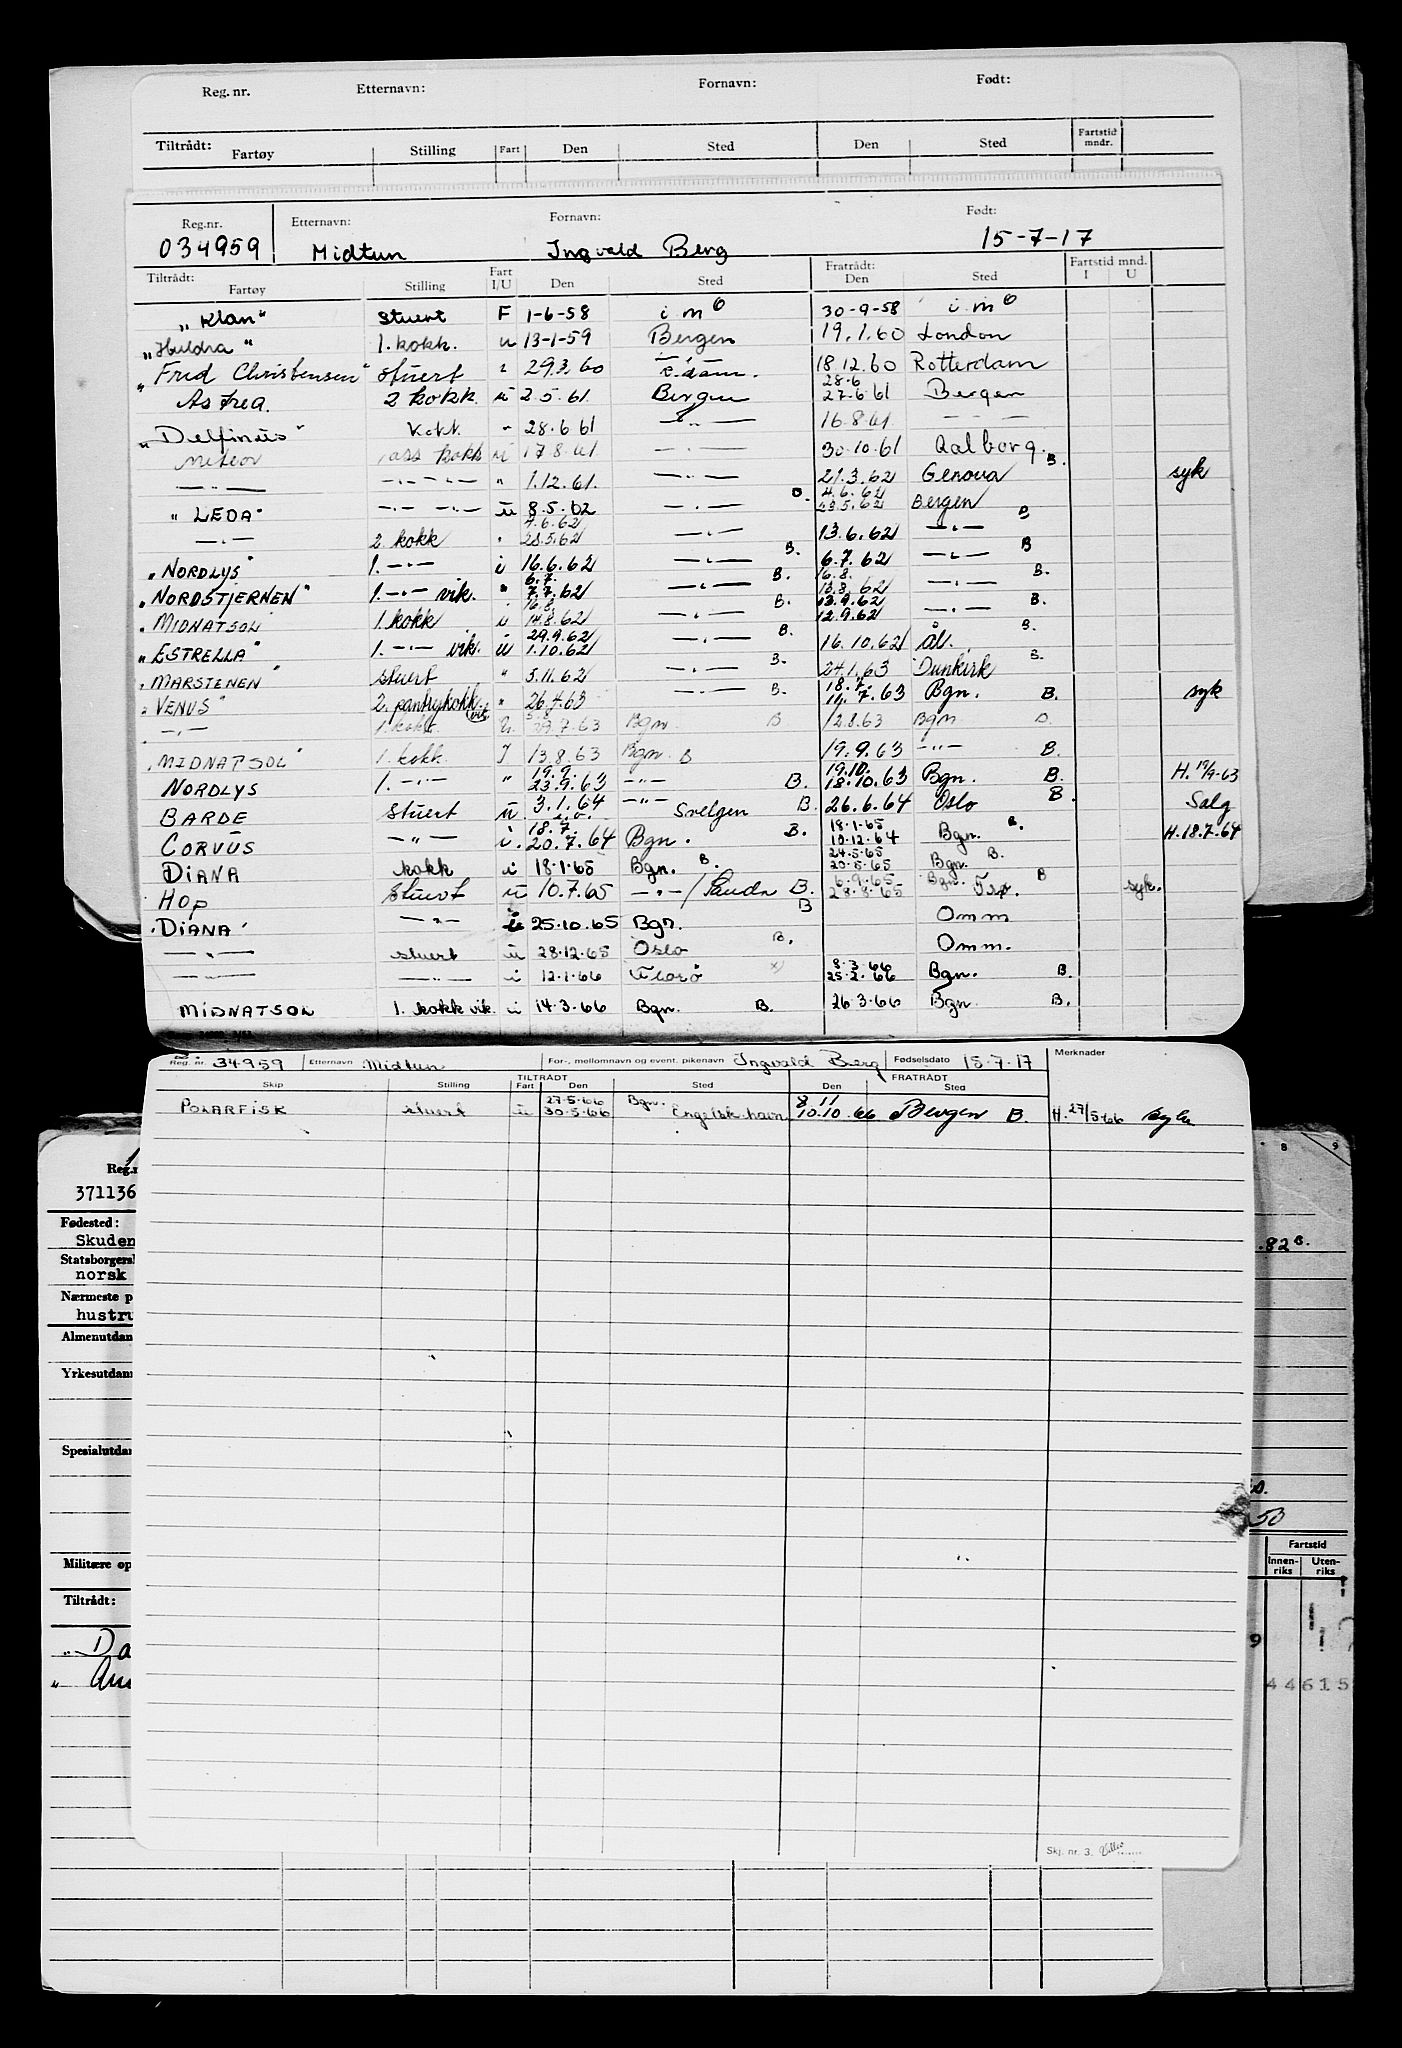 Reg. nr. Etternavn: Fornavn: Født:
Tiltrådt: Fartøy Stilling Fart Den Sted Den Sted Fartstid mndr.
Reg.nr. Etternavn: Fornavn: Født:
034959 Midtun Ingvald Berg 15-7-17
Tiltrådt: Fratrådt: Fartstid mnd.
Fartøy Stilling Fart I/U Den Sted Den Sted I U
"Klan" stuert F 1-6-58 i m 30-9-58 i m
"Huldra" 1. kokk. u 13-1-59 Bergen 19.1.60 London
"Fred Christensen" stuert " 29.3.60 18.12.60 Rotterdam
28-6
Astrea. 2 kokk. u 2.5.61. Bergen 27-6 61 Bergen
"Delfinus" kokk " 28.6.61 —"— 16.8.61 — — —
Meteor ass kokk u 17.8.61 —.— 30.10.61 Aalborg.
—"— —.— —.— " 1.12.61. —.— 21.3.62 Genova B. syk
4.6.62
"LEDA" —.— —.— u 8.5.62 —.— B. 23.5.62 Bergen
4.6.62
—"— 2. kokk " 28.5.62 —.— 13.6.62 —"— B
"NORDLYS" 1. —"— i 16.6.62 —.— B. 6.7.62 —"— B
6.7. 16.8.
"NORDSTJERNEN" 1. —"— vik. " 7.7.62 —.— B. 13.8.62 —.— B.
16.8. 13.9.62
"MIDNATSOL" 1. kokk i 14.8.62 —.— B. 12.9.62 —.— B.
29.9.62
"ESTRELLA" 1. —"— vik. u 1.10.62 —.— B. 16.10.62 Ål. B.
"MARSTENEN" stuert " 5.11.62 —.— B. 24.1.63 Dunkirk B.
18.7.
"VENUS" 2. pantrykokk. " 26.4.63 —.— B. 16.7.63 Bgn. B. syk
—"— 1. kokk vik. u. 29.7.63 Bgn. B 12.8.63 Bgn B.
"MIDNATSOL" 1. kokk. I 13.8.63 Bgn. B 19.9.63 —"— B.
19.9. 19.10.
NORDLYS 1. —"— " 23.9.63 —"— B. 18.10.63 Bgn. B. H. 19/9-63
BARDE stuert u. 3.1.64 —"— Svelgen B. 26.6.64 Oslo B. Salg
18.7. 18.1.65
CORVUS —"— i. 20.7.64 Bgn. B. 10.12.64 Bgn. B. H.18.7.64
24.5.65
DIANA kokk i 18.1.65 Bgn. B. 20.5.65 Bgn. B.
6.9.65 Bgn.
HOP stuert u 10.7.65 —"— / Sauda B. 28.8.65 B syk.
"DIANA" —"— 25.10.65 Bgn. B Omm
—"— stuert u 28.12.65 Oslo B. Omm.
8.3.66
—"— —"— i 12.1.66 Florø x) 25.2.66 Bgn. B.
MIDNATSOL 1. kokk vik. i 14.3.66 Bgn. B. 26.3.66 Bgn. B.
Reg. nr. 34959 Etternavn Midtun For-, mellomnavn og event. pikenavn Ingvald Berg Fødselsdato 15.7.17 Merknader
TILTRÅDT FRATRÅDT
Skip Stilling Fart Den Sted Den Sted
27.5.66 Bgn. 8.11
POLARFISK stuert u 30.5.66 Engelsk havn 10.10.66 Bergen B. H. 27/5-66 syk
Skj. nr. 3.
Reg.n
371136
Fødested:
Skuden
Statsborgersk
norsk
Nærmeste p
hustru
Almenutdan
Yrkesutdann
Spesialutdan
Militære op
Tiltrådt:
" Da
"
8 9
.82 B.
50
Fartstid
Innen-riks Uten-riks
9
44615